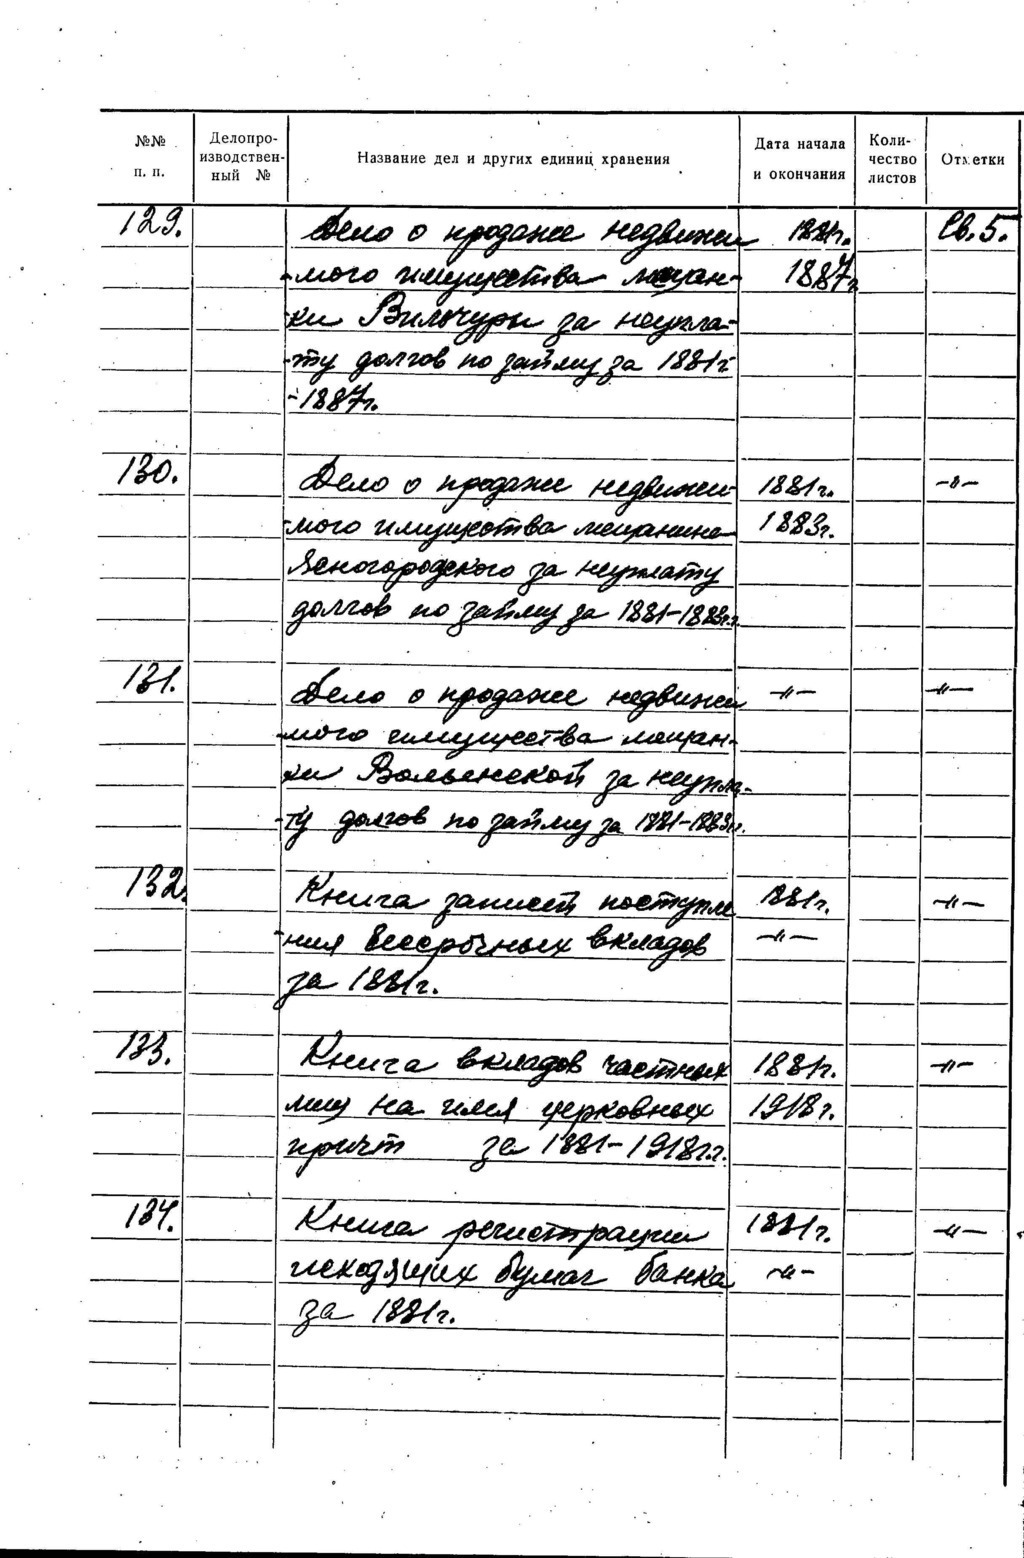 №№ п. п. Делопро-изводствен-ный № Название дел и других единиц хранения Дата начала и окончания Коли-чество листов Отметки
129. Дело о продаже недвижи 1881г. Св. 5.
-мого имущества мещан- 1887г.
-ки Вильчуры за неупла-
-ту долгов по займу за 1881г-
-1887г.
130. Дело о продаже недвижи- 1881г. -"-
-мого имущества мещанина 1883г.
Ясногородского за неуплату
долгов по займу за 1881-1883г.г.
131. Дело о продаже недвижи -"- -"-
-мого имущества мещан-
-ки Волынской за неупла-
-ту долгов по займу за 1881-1883гг.
132. Книга записей поступле 1881г. -"-
-ния бессрочных вкладов -"-
за 1881г.
133. Книга вкладов частных 1881г. -"-
лиц на имя церковных 1918г.
причт за 1881-1918г.г.
134. Книга регистрации 1881г. -"-
исходящих бумаг банка -"-
за 1881г.